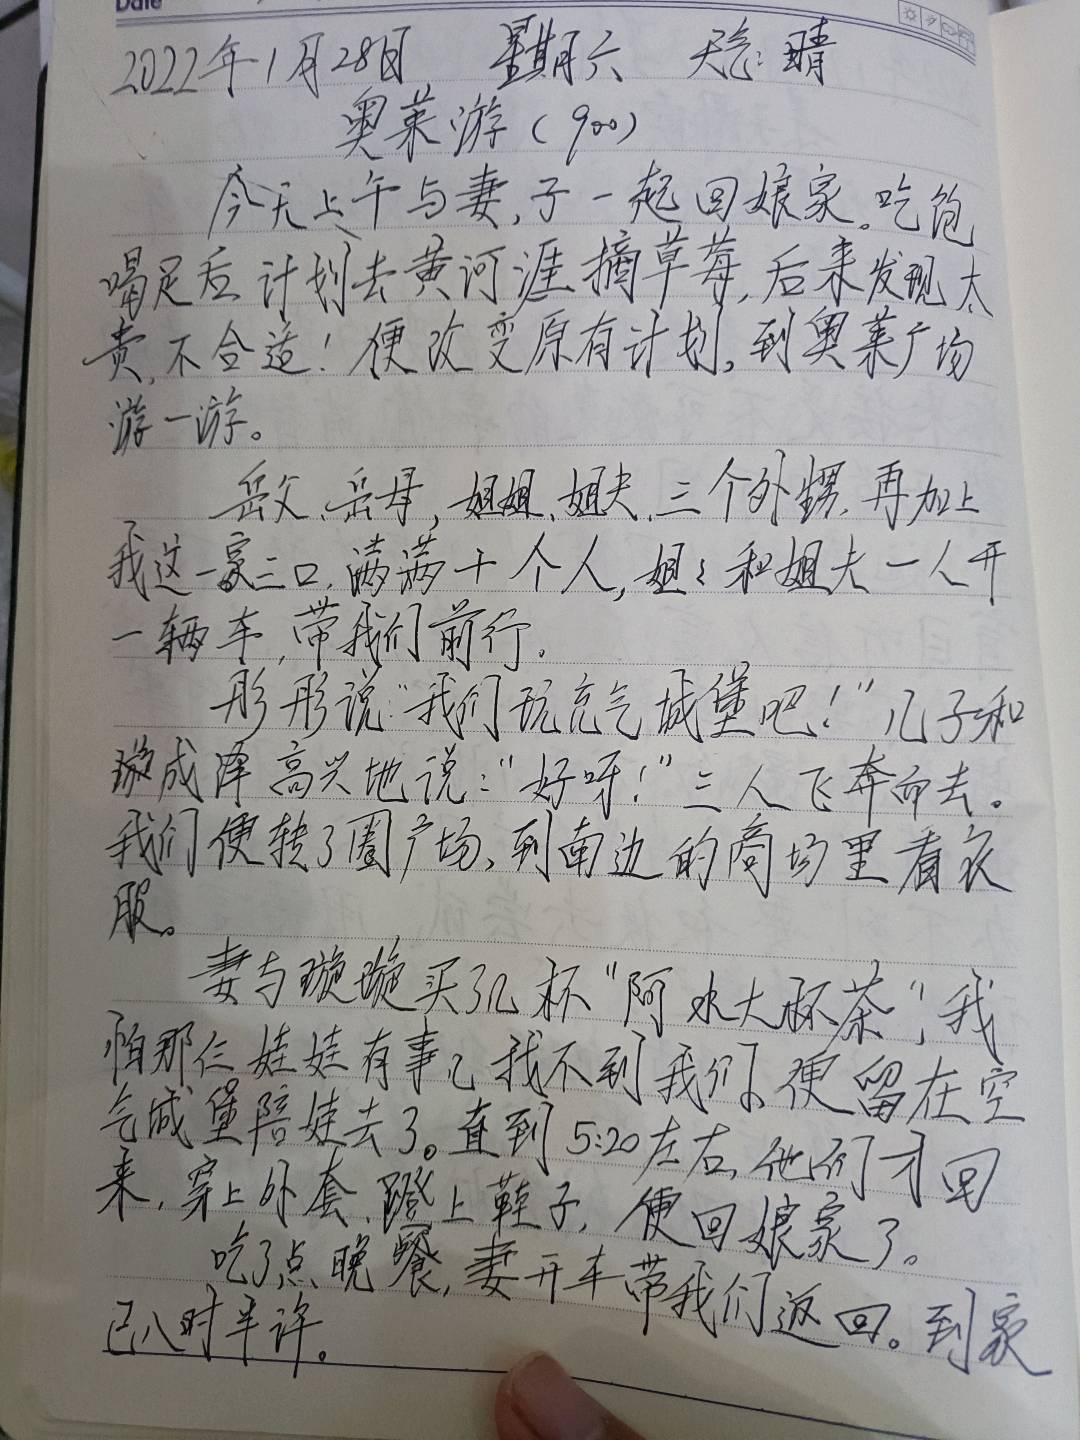 Date
2022年1月28日 星期六 天气:晴
奥莱游(900)
今天上午与妻,子一起回娘家。吃饱
喝足后计划去黄河涯摘草莓,后来发现太
贵,不合适!便改变原有计划,到奥莱广场
游一游。
岳父、岳母,姐姐、姐夫、三个外甥,再加上
我这一家三口,满满十个人,姐々和姐夫一人开
一辆车,带我们前行。
彤彤说:“我们玩充气城堡吧!”儿子和
璇成泽高兴地说:“好呀!”三人飞奔而去。
我们便转了圈广场,到南边的商场里看衣
服。
妻与璇璇买了几杯“阿水大杯茶”,我
怕那仨娃娃有事儿找不到我们,便留在空
气城堡陪娃去了。直到5:20左右,他们才回
来,穿上外套、蹬上鞋子,便回娘家了。
吃了点晚餐,妻开车带我们返回。到家
已八时半许。